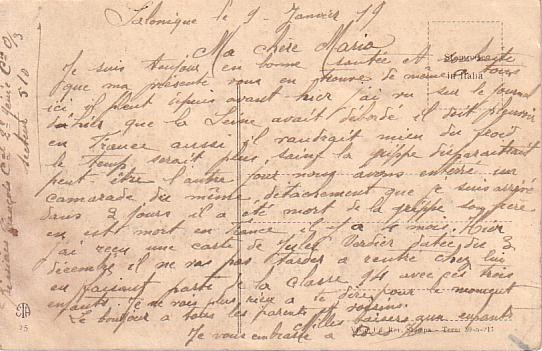 Salonique le 9 Janvier 19
Ma chere Maria
Je suis toujour en bonne santée et souhaite
que ma présente vous en trouve de même tous
ici il pleut depuis avant hier j'ai vu sur le journal
que la Seine avait débordé il doit pleuvoir
en France aussi il vaudrait mieu du froid
le temp serait plus sain la grippe disparaitrait
peut être l'autre jour nous avons enterré un
camarade du même détachement que je suis arrivé
dans 3 jours il a été mort de la grippe son père
en est mort en France il y a 2 mois. Hier
j'ai reçu une carte de Jules Verdier datée du 3
décembre il ne vas pas tarder a rentré chez lui
en faisant partie de la classe 94 avec ces trois
enfants. Je ne vais plus rien a te dire pour le moment
Le bonjour a tous les parents et voisins.
Milles baisers aux enfants
Je vous embrasse a tous
François
Génie Cie
Secteur 510
Stampata
in Italia
STA
25
Rev. Stampa - Terni